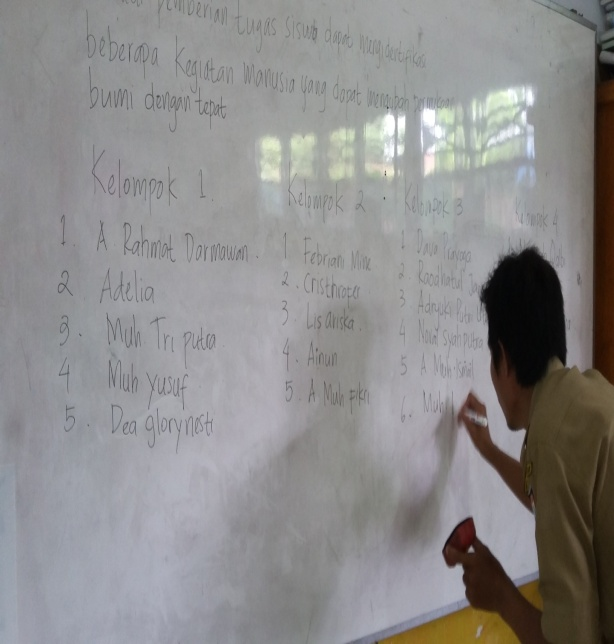 pemberian tugas siswa dapat mengidentifikasi
beberapa Kegiatan manusia yang dapat mengubah permukaan
bumi dengan tepat
Kelompok 1.
1. A Rahmat Darmawan.
2 Adelia
3. Muh Tri putra
4 Muh Yusuf
5. Dea glorynesti
Kelompok 2
1 Febriani
2. Cristhroper
3. Lis ariska.
4. Ainun
5. A Muh Fikri
Kelompok 3
1
2
3 Putri
4 Noval Syahputra
5 A. Muh
6. Muh
Kelompok 4